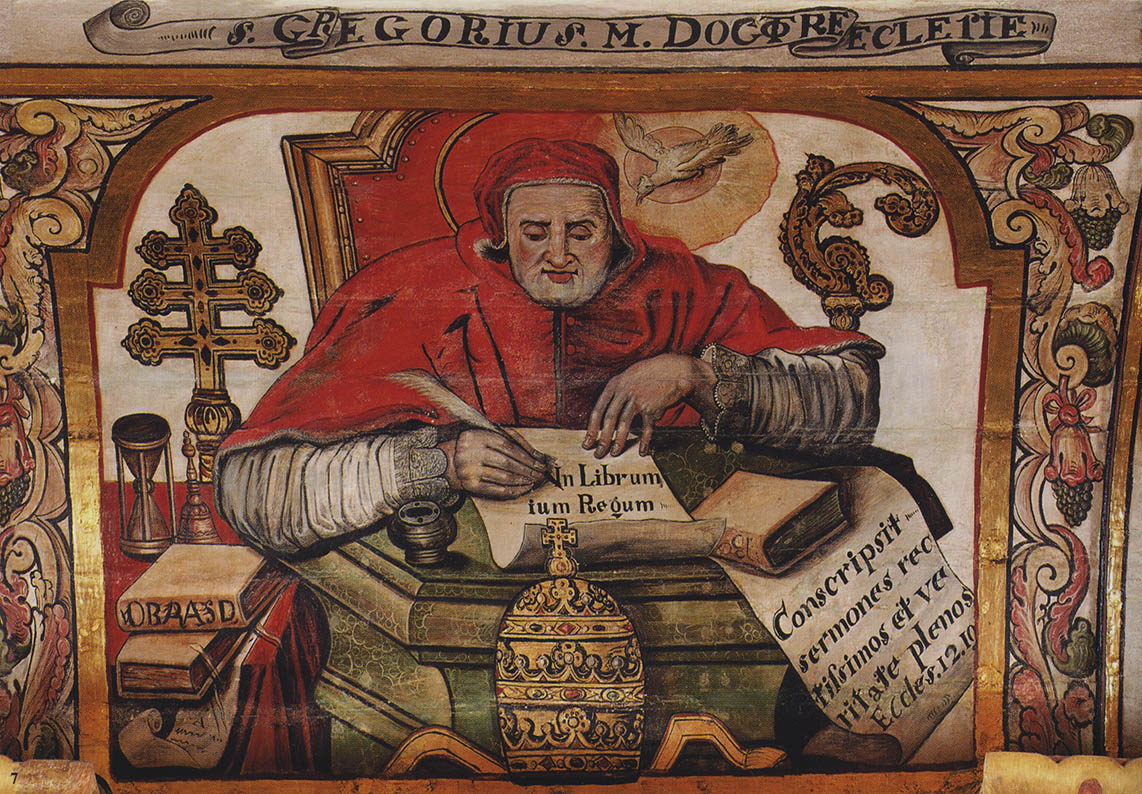 S. GREGORIUS. M. DOCTRE ECLETIE
In Librum
ium Regum
OBRASD
Conscripsit
sermones rec
tissimos et ve
ritate plenos
Eccles. 12. 10
7